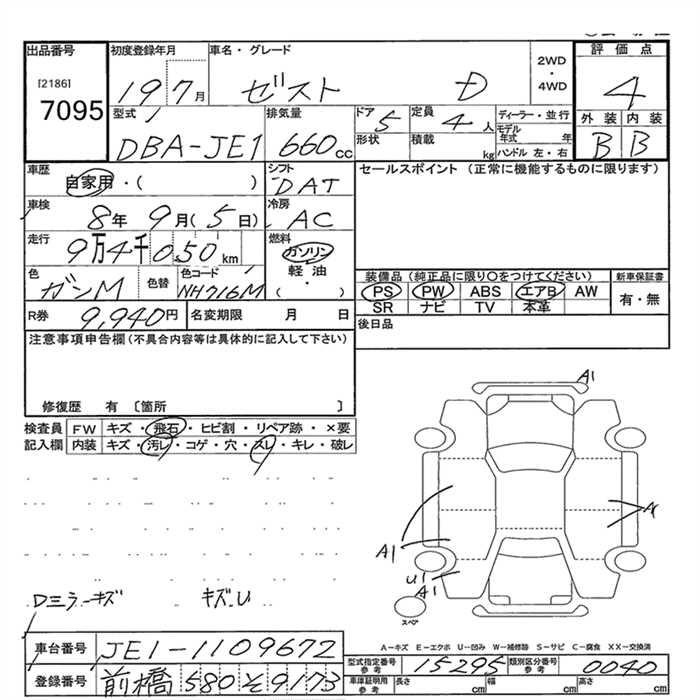 出品番号 初度登録年月 車名・グレード 2WD・4WD 評価点
[2186] 7095 19 7月 ゼスト D 4
型式 DBA-JE1 排気量 660cc ドア 5 形状 定員 4人 積載 kg ディーラー・並行 モデル年式 年 ハンドル 左・右 外装 B 内装 B
車歴 自家用・( ) シフト DAT セールスポイント (正常に機能するものに限ります)
車検 8年 9月(5日) 冷房 AC
走行 9万4千050km 燃料 ガソリン・軽油・( )
色 ガンM 色替 色コード NH716M 装備品(純正品に限り○をつけてください) 新車保証書
PS PW ABS エアB AW 有・無
SR ナビ TV 本革
R券 9,940円 名変期限 月 日 後日品
注意事項申告欄(不具合内容等は具体的に記入して下さい)
修復歴 有 〔箇所 〕
検査員 FW キズ・飛石・ヒビ割・リペア跡・×要
記入欄 内装 キズ・汚レ・コゲ・穴・スレ・キレ・破レ
A1
A1
U1
A1
Dミラーキズ キズ.U
スペア
A-キズ E-エクボ U-凹み W-補修跡 S-サビ C-腐食 XX-交換済
車台番号 JE1-1109672
登録番号 前橋 580 そ 9173
型式指定番号 参考 15295 類別区分番号 参考 0040
車庫証明用 参考 長さ cm 幅 cm 高さ cm